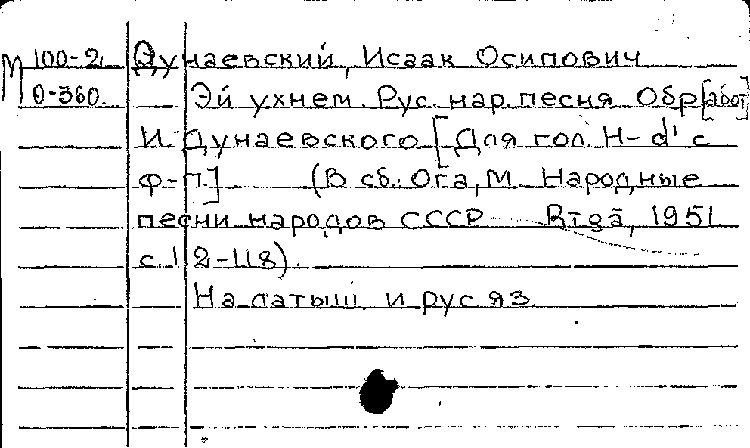 М 100-2 Дунаевский, Исаак Осипович
О-360 Эй ухнем. Рус. нар. песня Обр[абот]
И. Дунаевского [Для гол. H-d' с
ф-п.] (В сб.: Ога, М. Народные
песни народов СССР Rīgā, 1951
с. 112-118).
На латыш. и рус. яз.